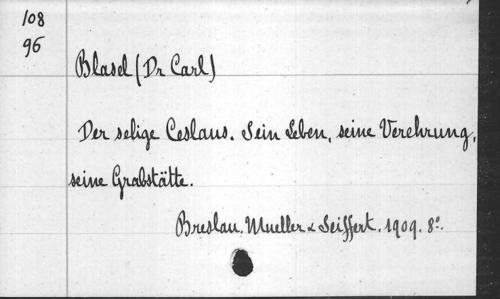 108
96
Blasel (Dr Carl)
Der selige Ceslaus. Sein Leben, seine Verehrung,
seine Grabstätte.
Breslau. Mueller & Seiffert. 1909. 8º.